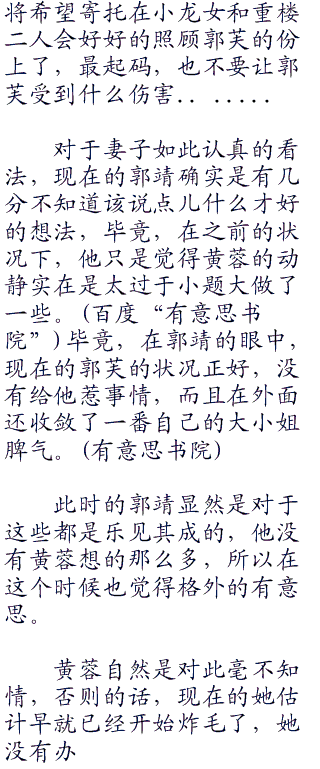 将希望寄托在小龙女和重楼
二人会好好的照顾郭芙的份
上了，最起码，也不要让郭
芙受到什么伤害．．．．．．．
对于妻子如此认真的看
法，现在的郭靖确实是有几
分不知道该说点儿什么才好
的想法，毕竟，在之前的状
况下，他只是觉得黄蓉的动
静实在是太过于小题大做了
一些。(百度“有意思书
院”)毕竟，在郭靖的眼中，
现在的郭芙的状况正好，没
有给他惹事情，而且在外面
还收敛了一番自己的大小姐
脾气。(有意思书院)
此时的郭靖显然是对于
这些都是乐见其成的，他没
有黄蓉想的那么多，所以在
这个时候也觉得格外的有意
思。
黄蓉自然是对此毫不知
情，否则的话，现在的她估
计早就已经开始炸毛了，她
没有办